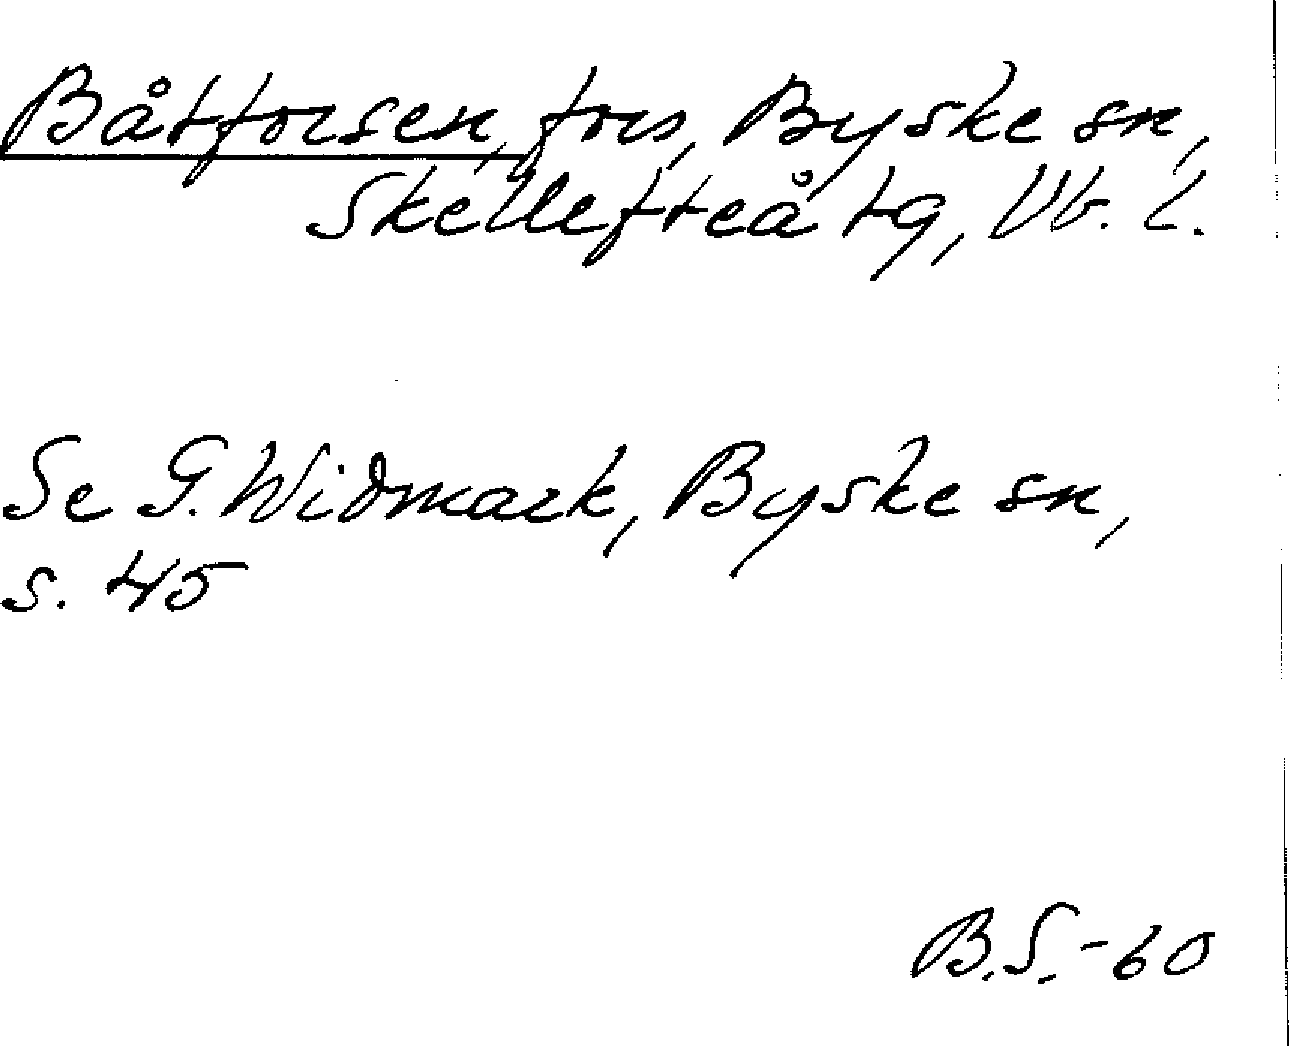 Båtforsen, fors, Byske sn,
Skellefteå tg, Vb. l.
Se G. Widmark, Byske sn,
s. 45
B.S.-60